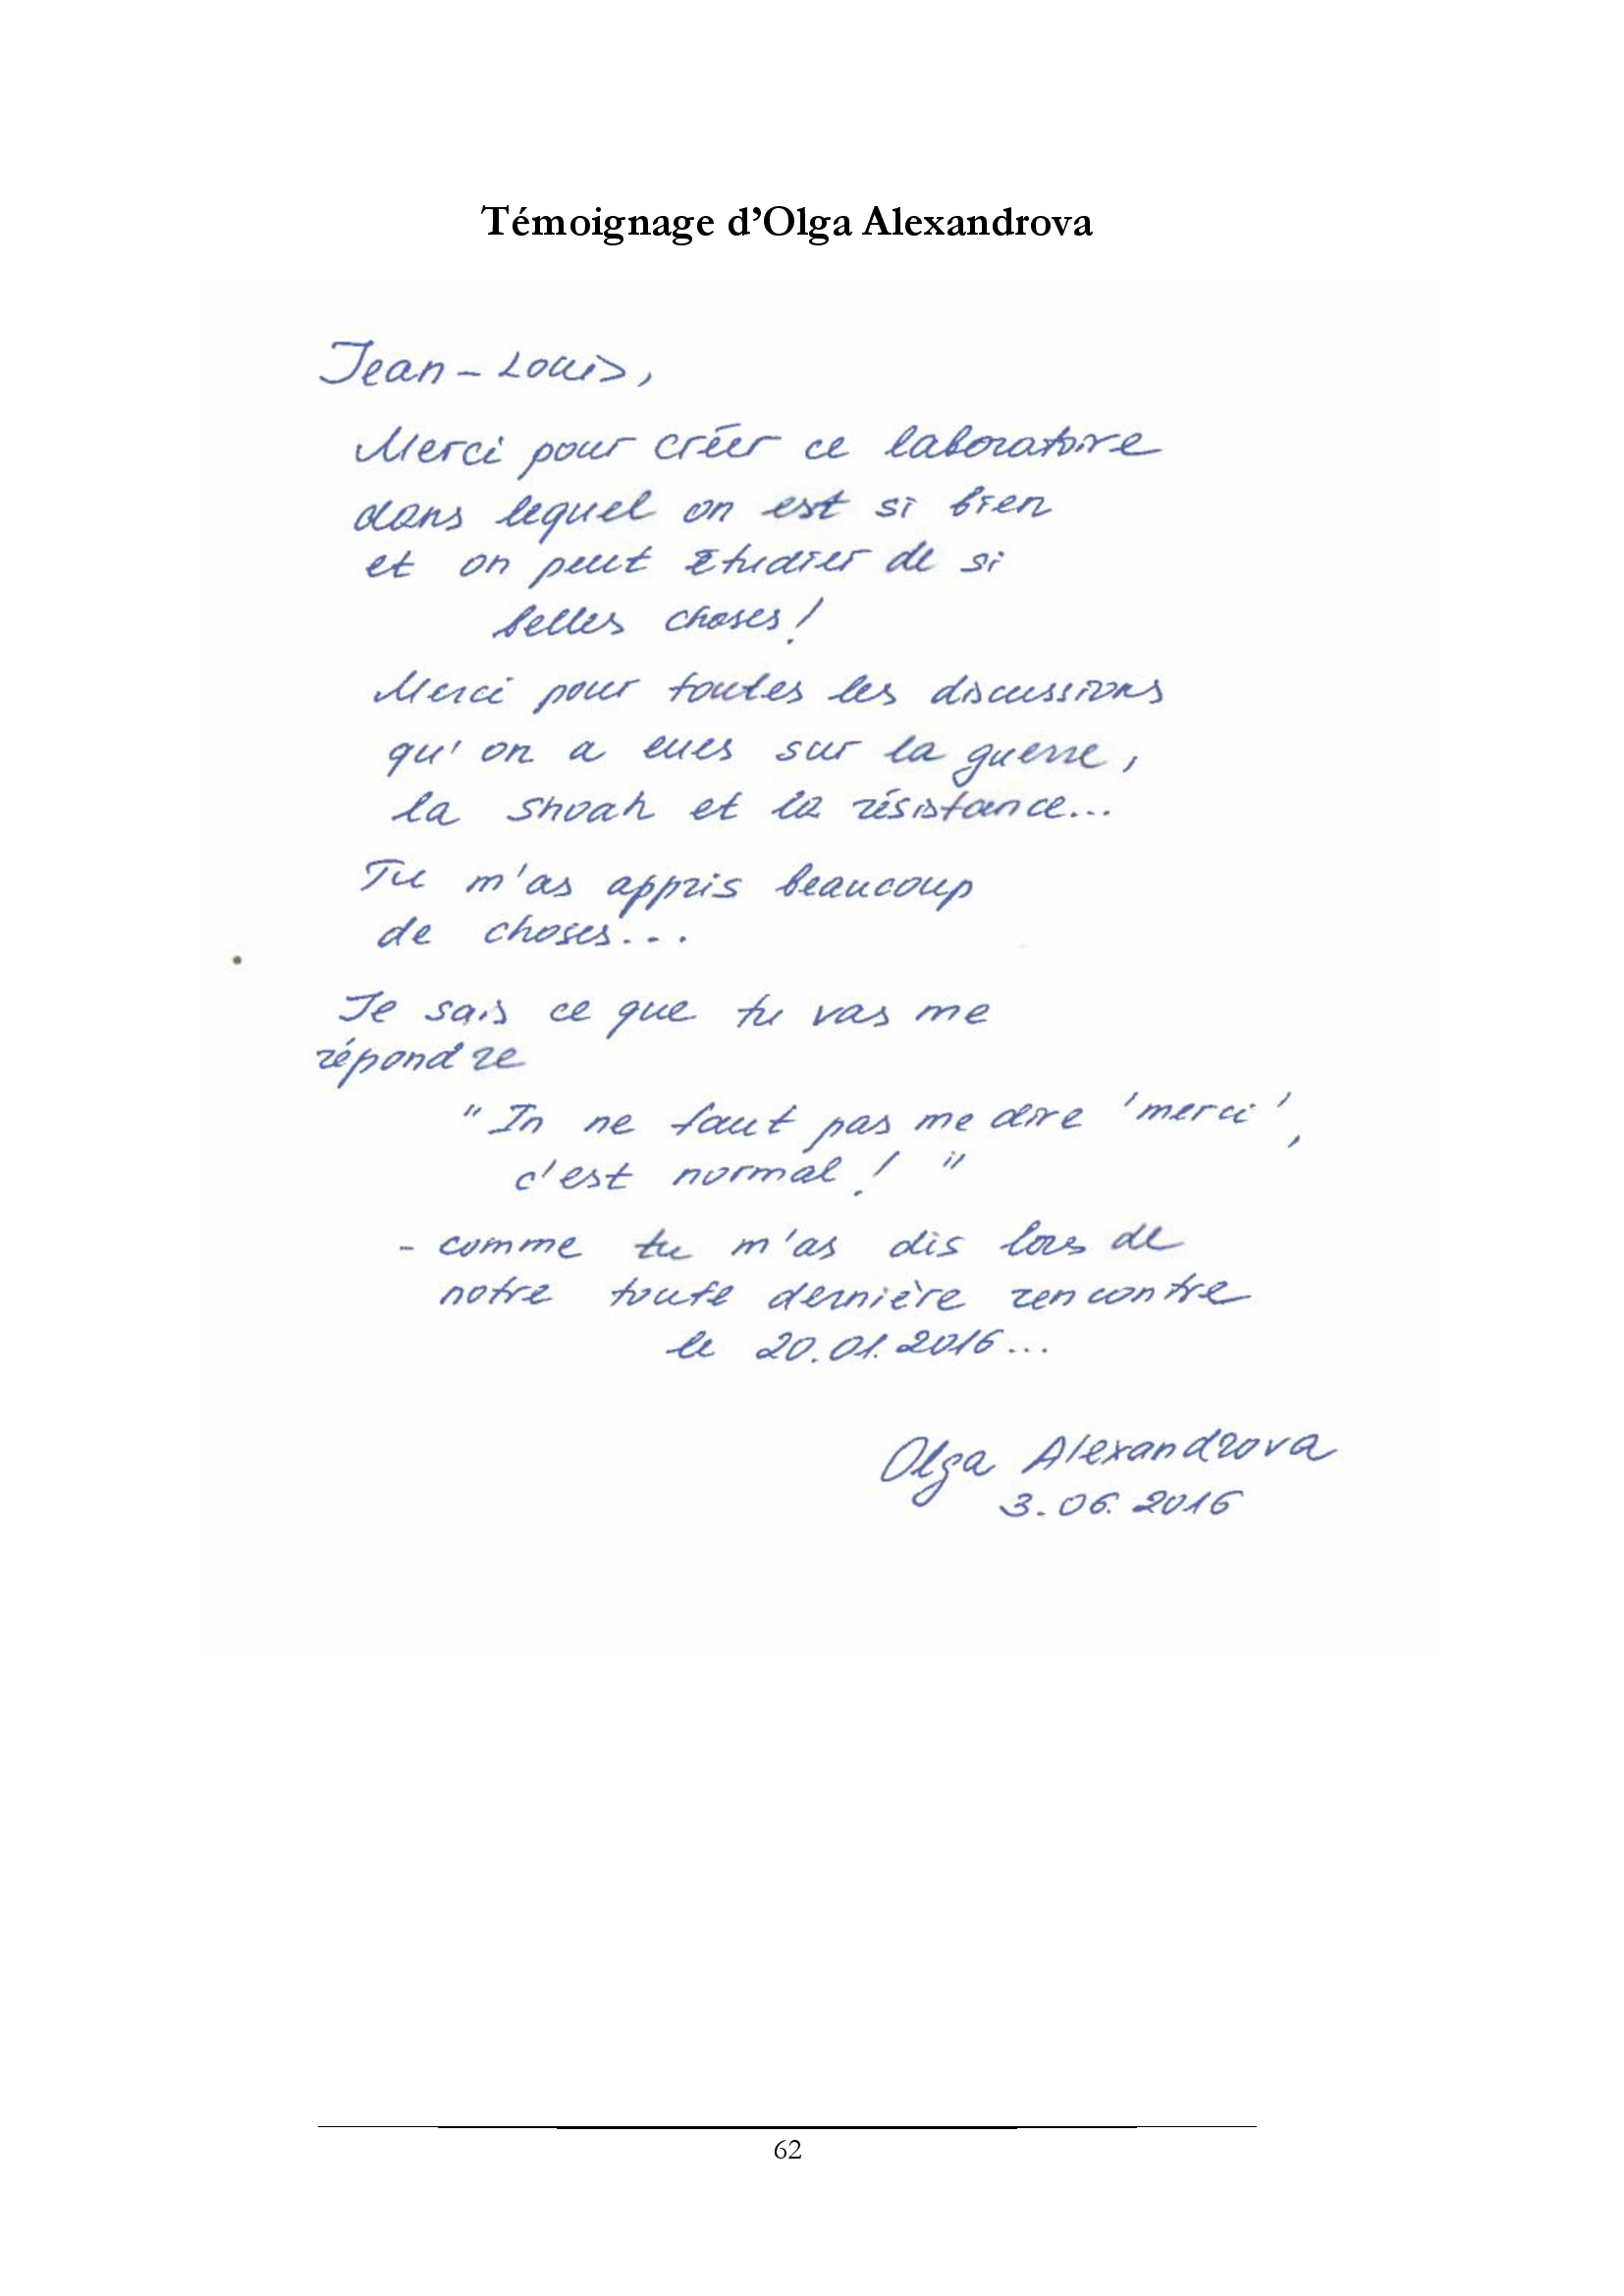 Témoignage d’Olga Alexandrova
Jean-Louis,
Merci pour créer ce laboratoire
dans lequel on est si bien
et on peut étudier de si
belles choses!
Merci pour toutes les discussions
qu'on a eues sur la guerre,
la Shoah et la résistance...
Tu m'as appris beaucoup
de choses...
Je sais ce que tu vas me
répondre
"In ne faut pas me dire 'merci',
c'est normal! "
- comme tu m'as dis lors de
notre toute dernière rencontre
le 20.01.2016...
Olga Alexandrova
3.06.2016
62